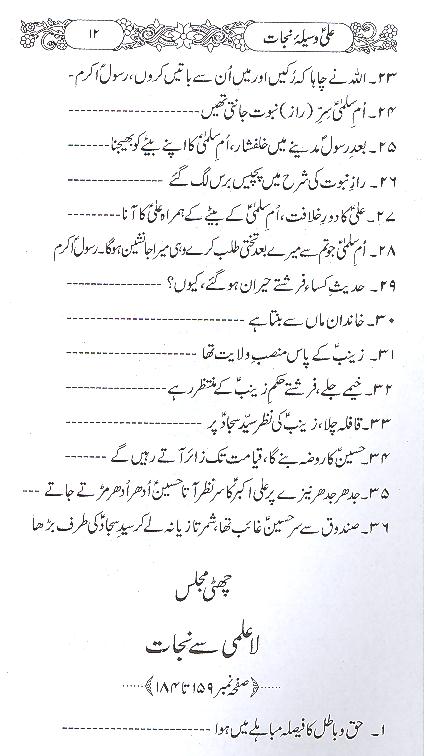 علیؑ وسیلۂ نجات
۱۲
۲۳۔ اللہ نے چاہا کہ رُکیں اور میں اُن سے باتیں کروں، رسولِؐ اکرم -
۲۴۔ اُمِ سلمیٰؑ سِرِّ (راز) نبوت جانتی تھیں ------------
۲۵۔ بعدِ رسولؐ مدینے میں خلفشار، اُمِ سلمیٰؑ کا اپنے بیٹے کو بھیجنا -------
۲۶۔ رازِ نبوت کی شرح میں پچیس برس لگ گئے ------------
۲۷۔ علیؑ کا دورِ خلافت، اُمِ سلمیٰؑ کے بیٹے کے ہمراہ علیؑ کا آنا --------
۲۸۔ اُمِ سلمیٰؑ جو تم سے میرے بعد تختی طلب کرے وہی میرا جانشین ہوگا۔ رسولِؐ اکرم
۲۹۔ حدیثِ کساء فرشتے حیران ہو گئے، کیوں؟ ------------
۳۰۔ خاندان ماں سے بنتا ہے ------------------
۳۱۔ زینبؑ کے پاس منصبِ ولایت تھا --------------
۳۲۔ خیمے جلے، فرشتے حکمِ زینبؑ کے منتظر رہے ------------
۳۳۔ قافلہ چلا، زینبؑ کی نظر سیّدِ سجادؑ پر --------------
۳۴۔ حسینؑ کا روضہ بنے گا، قیامت تک زائر آتے رہیں گے --------
۳۵۔ جدھر جدھر نیزے پر علی اکبرؑ کا سر نظر آتا حسینؑ اُدھر اُدھر مڑتے جاتے ---
۳۶۔ صندوق سے سرِ حسینؑ غائب تھا، شمر تازیانہ لے کر سیدِ سجادؑ کی طرف بڑھا
چھٹی مجلس
لاعلمی سے نجات
﴿صفحہ نمبر ۱۵۹ تا ۱۸۴﴾
۱۔ حق و باطل کا فیصلہ مباہلے میں ہوا ----------------